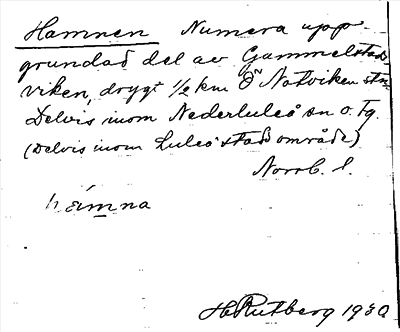 Hamnen Numera upp-
grundad del av Gammelstads-
viken, drygt 1/2 km Ö Notviken stn.
Delvis inom Nederluleå sn o. Tg.
(Delvis inom Luleå stads område)
Norrb. l.
hámna
H Rutberg 1930